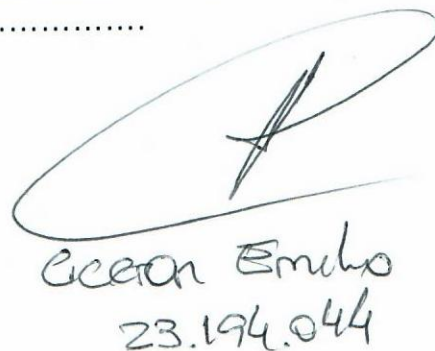 ..................
Ciceron Emilio
23.194.044